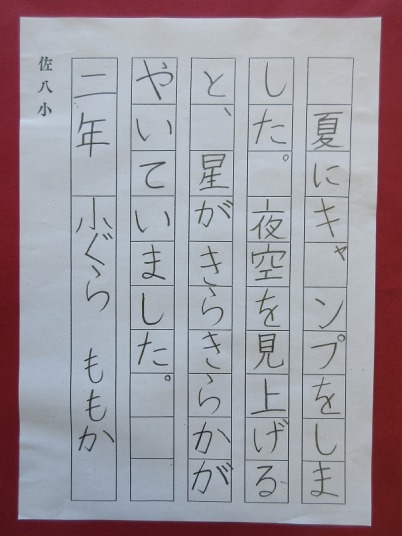 夏にキャンプをしま
した。夜空を見上げる
と、星がきらきらかが
やいていました。
二年 小ぐら ももか
佐八小